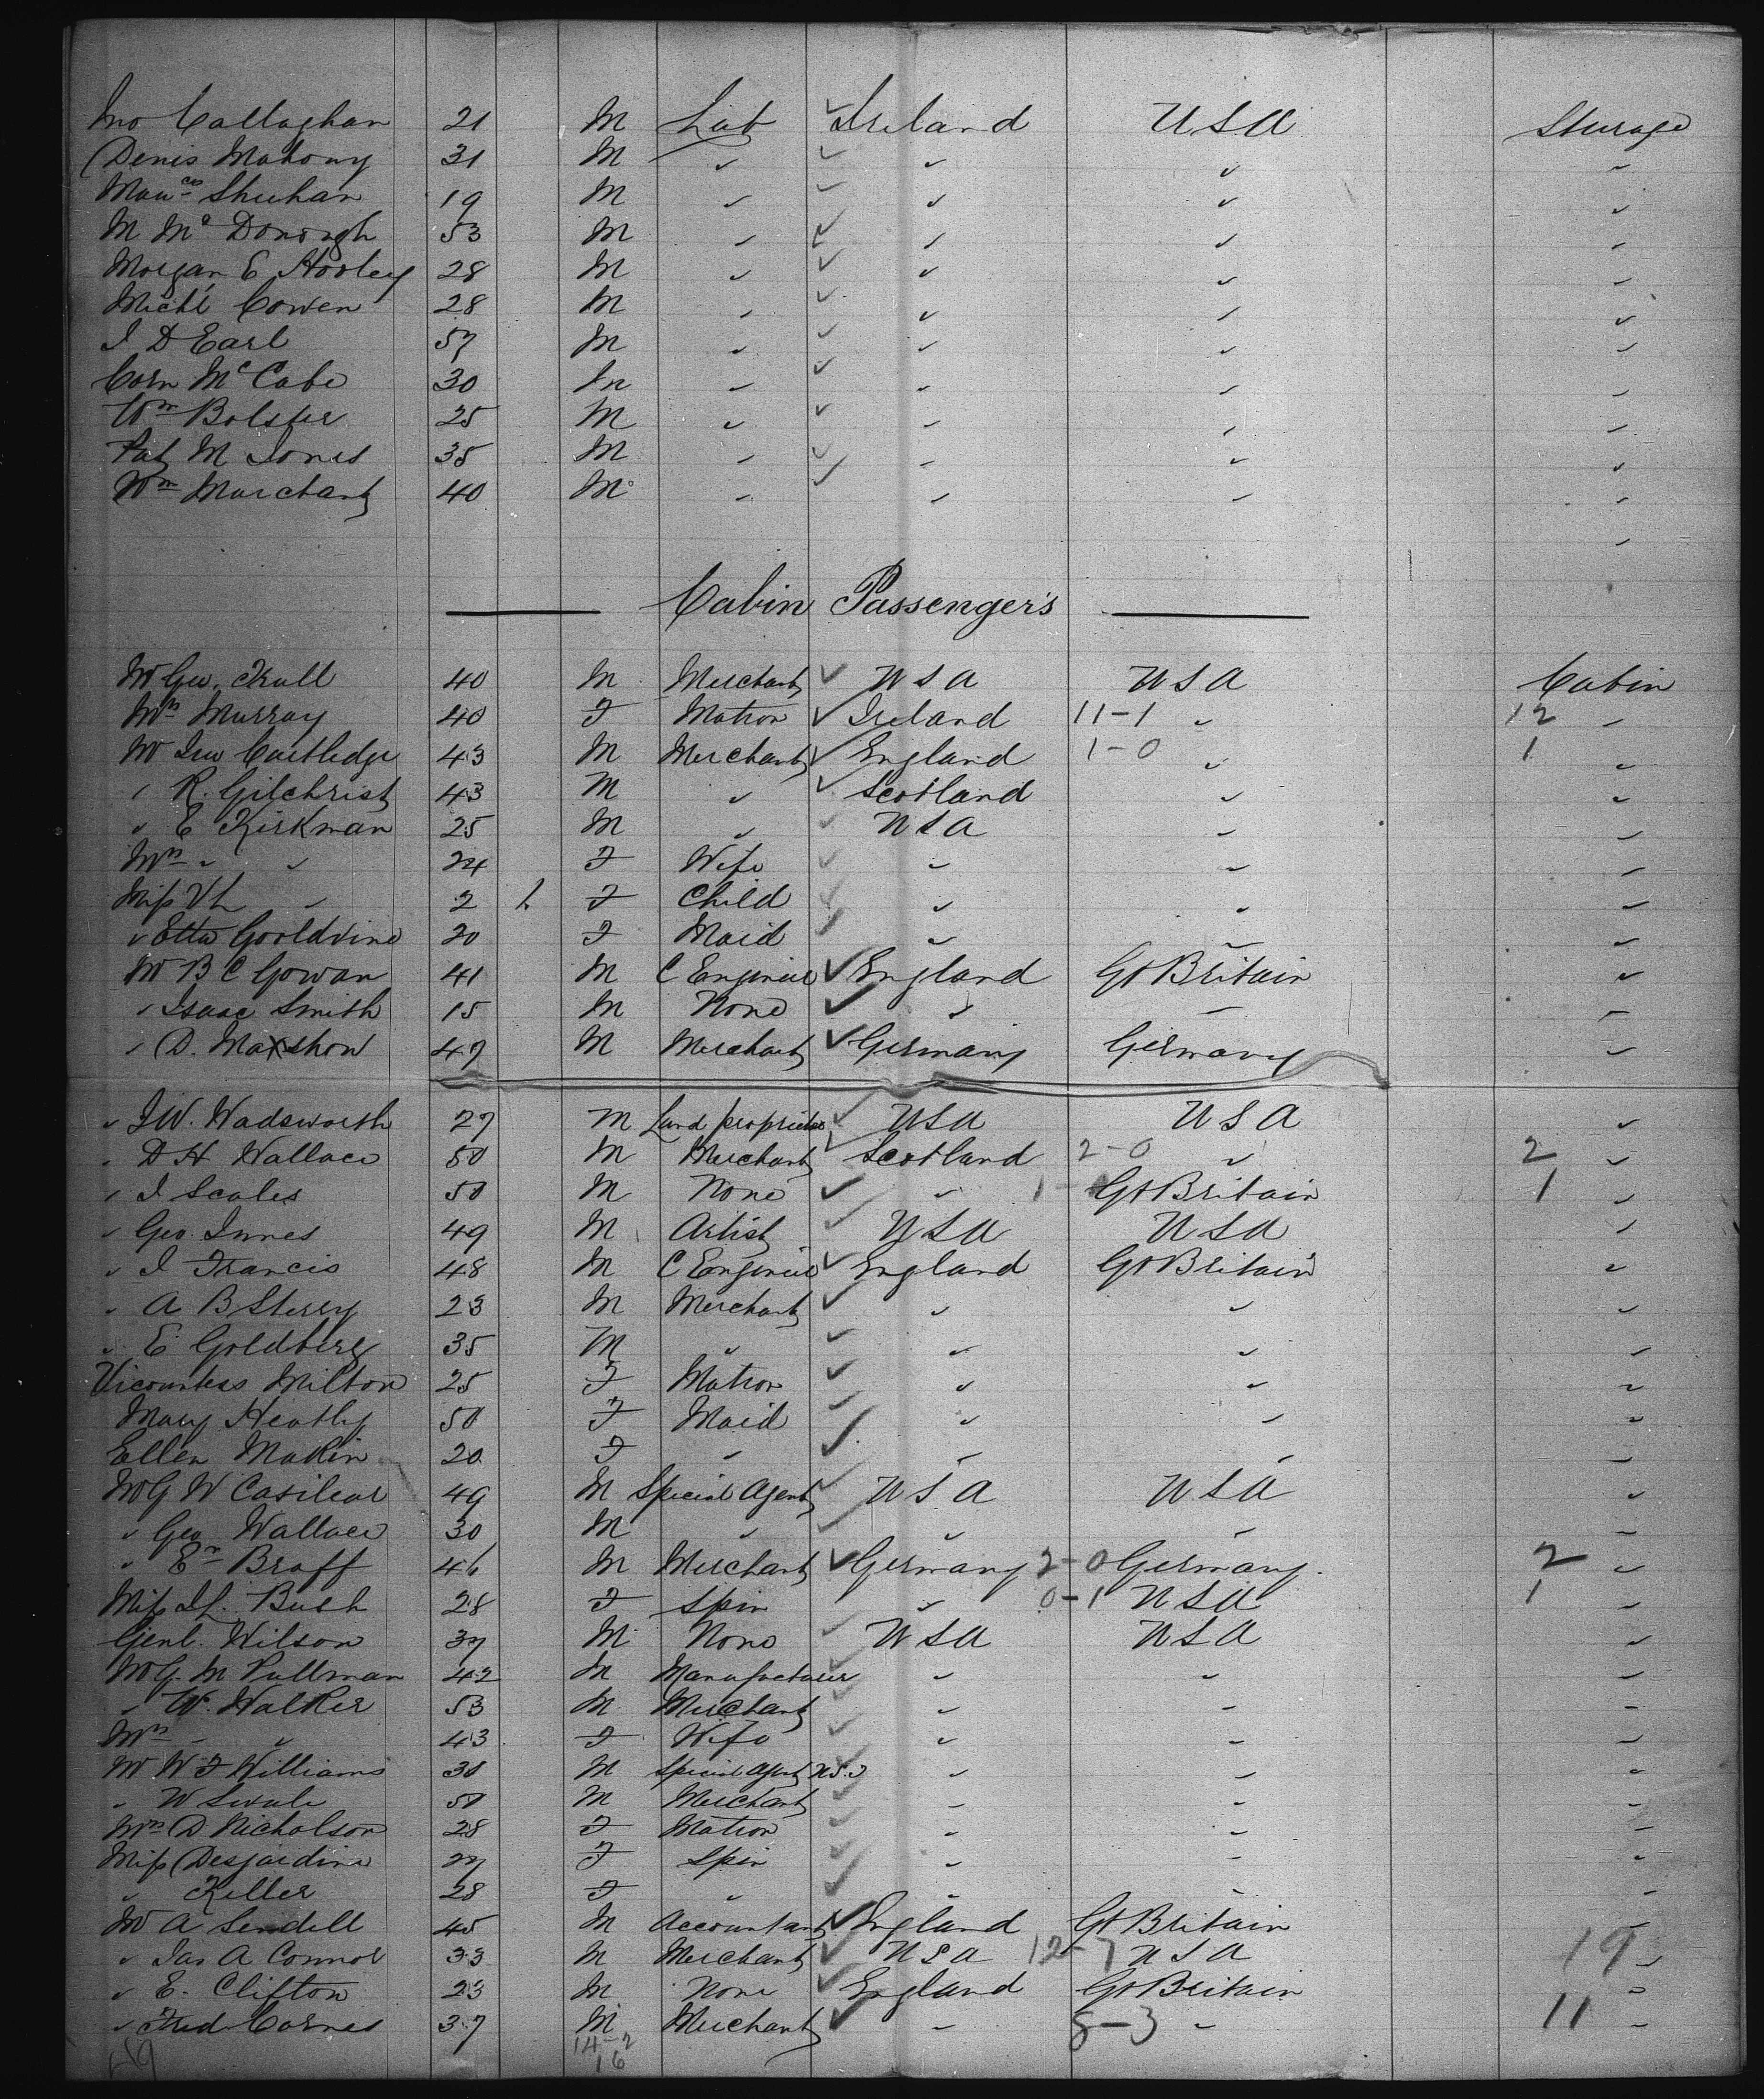 Jno Callaghan 21 M Lab ✓ Ireland USA Sturage
Denis Mahony 31 M ✓ ✓ ✓ ✓ ✓
Mau^ce Shuhan 19 M ✓ ✓ ✓ ✓ ✓
M Mc Donorgh 53 M ✓ ✓ ✓ ✓ ✓
Morgan E Hooley 28 M ✓ ✓ ✓ ✓ ✓
Michl Cowen 28 M ✓ ✓ ✓ ✓ ✓
J D Earl 57 M ✓ ✓ ✓ ✓ ✓
Corn McCabe 30 M ✓ ✓ ✓ ✓ ✓
Wm Bolster 25 M ✓ ✓ ✓ ✓ ✓
Pat M Jones 35 M ✓ ✓ ✓ ✓ ✓
Wm Marchant 40 M ✓ ✓ ✓ ✓ ✓
Cabin Passenger's
Mr Geo. 40 M Merchant ✓ USA USA Cabin
Mrs Murray 40 F Matron ✓ Ireland 11-1 ✓ 12 ✓
Mr Cartledge 43 M Merchant ✓ England 1-0 ✓ 1 ✓
✓ R. Gilchrist 43 M ✓ ✓ Scotland ✓ ✓
✓ E Kirkman 25 M ✓ ✓ USA ✓ ✓
Mrs ✓ ✓ 24 F Wife ✓ ✓ ✓ ✓
Miss ✓ 2 F Child ✓ ✓ ✓ ✓
✓ Etta Gooldvine 20 F Maid ✓ ✓ ✓ ✓
Mr B C Gowan 41 M C Engineer ✓ England Gt Britain ✓
✓ Isaac Smith 15 M None ✓ ✓ ✓ ✓
✓ D. 47 M Merchant ✓ Germany Germany ✓
✓ J W. Wadsworth 27 M Land proprietor ✓ USA USA ✓
✓ D H Wallace 50 M Merchant ✓ Scotland 2-0 ✓ 2 ✓
✓ J Scales 50 M None ✓ ✓ Gt Britain 1 ✓
✓ Geo Innes 49 M Artist ✓ USA USA ✓
✓ J Francis 48 M C Engineer ✓ England Gt Britain ✓
✓ A B Sterry 23 M Merchant ✓ ✓ ✓ ✓
✓ E Goldberg 35 M ✓ ✓ ✓ ✓ ✓
Vicountess Milton 25 F Matron ✓ ✓ ✓ ✓
Mary Heatly 50 F Maid ✓ ✓ ✓ ✓
Ellen Makin 20 F ✓ ✓ ✓ ✓ ✓
Mr G W Casilear 49 M Special Agent ✓ USA USA ✓
✓ Geo Wallace 30 M ✓ ✓ ✓ ✓ ✓
✓ Braff 46 M Merchant ✓ Germany 2-0 Germany 2 ✓
Miss Bush 28 F Spin ✓ 0-1 USA 1 ✓
Genl. Wilson 37 M None ✓ USA USA ✓
Mr G. M Pullman 42 M Manufacturer ✓ ✓ ✓ ✓
✓ W. Walker 53 M Merchant ✓ ✓ ✓ ✓
Mrs ✓ ✓ 43 F Wife ✓ ✓ ✓ ✓
Mr W F Williams 30 M Special Agent ✓ ✓ ✓ ✓
✓ W 50 M Merchant ✓ ✓ ✓ ✓
Mrs D Nicholson 28 F Matron ✓ ✓ ✓ ✓
Miss Desjardine 27 F Spin ✓ ✓ ✓ ✓
✓ Keller 28 F ✓ ✓ ✓ ✓ ✓
Mr A Sendell 45 M Accountant ✓ England Gt Britain ✓
✓ Jas A Connor 33 M Merchant ✓ USA 12-7 USA 19 ✓
✓ E. Clifton 23 M None ✓ England Gt Britain ✓
✓ Fred Cornes 37 M Merchant ✓ ✓ 8-3 ✓ 11 ✓
14-2
16